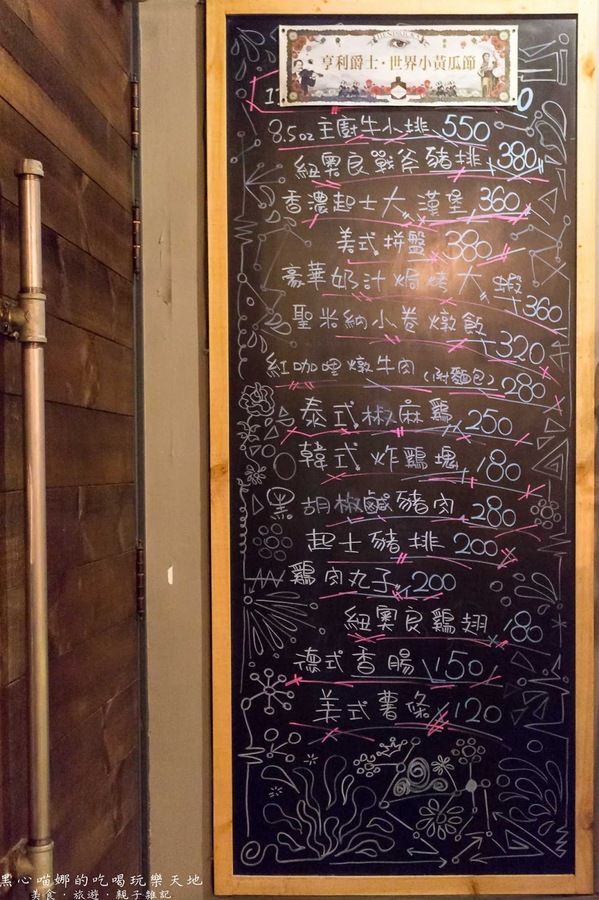 HENDRICK'S
亨利爵士·世界小黃瓜節
8.5oz 主廚牛小排 550
紐奧良戰斧豬排 380
香濃起士大漢堡 360
美式拼盤 380
豪華奶汁焗烤大蝦 360
聖米納小卷燉飯 320
紅咖哩燉牛肉(附麵包) 280
泰式椒麻雞 250
韓式炸雞塊 180
黑胡椒鹹豬肉 280
起士豬排 200
雞肉丸子 200
紐奧良雞翅 180
德式香腸 150
美式薯條 120
黑心喵娜的吃喝玩樂天地
美食·旅遊·親子雜記